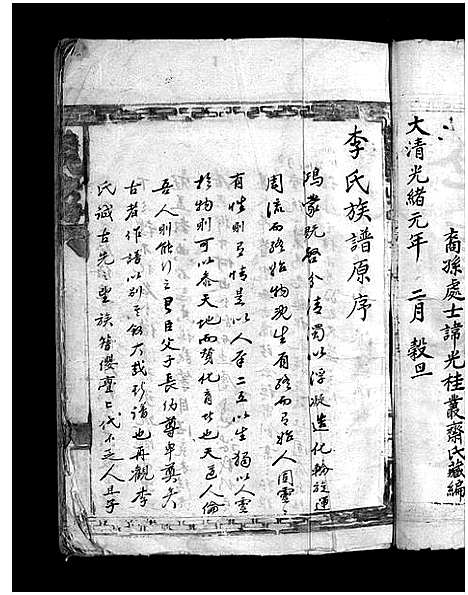 裔孫處士諱光桂叢齋氏藏編
大清光緒元年 二月 穀旦
李氏族譜原序
鴻蒙既啓分清濁以浮凝造化輪旋運
周流而終始物既生有終而有始人固靈
有性則有情是以人本二五以生獨以人靈
於物則可以參天地而贊化育者也天道人倫
吾人則能行之君臣父子長幼尊卑奠矣
古者作譜以別之欽大哉珍譜也再觀李
氏誠古先之望族簪纓疊上代不乏人且子